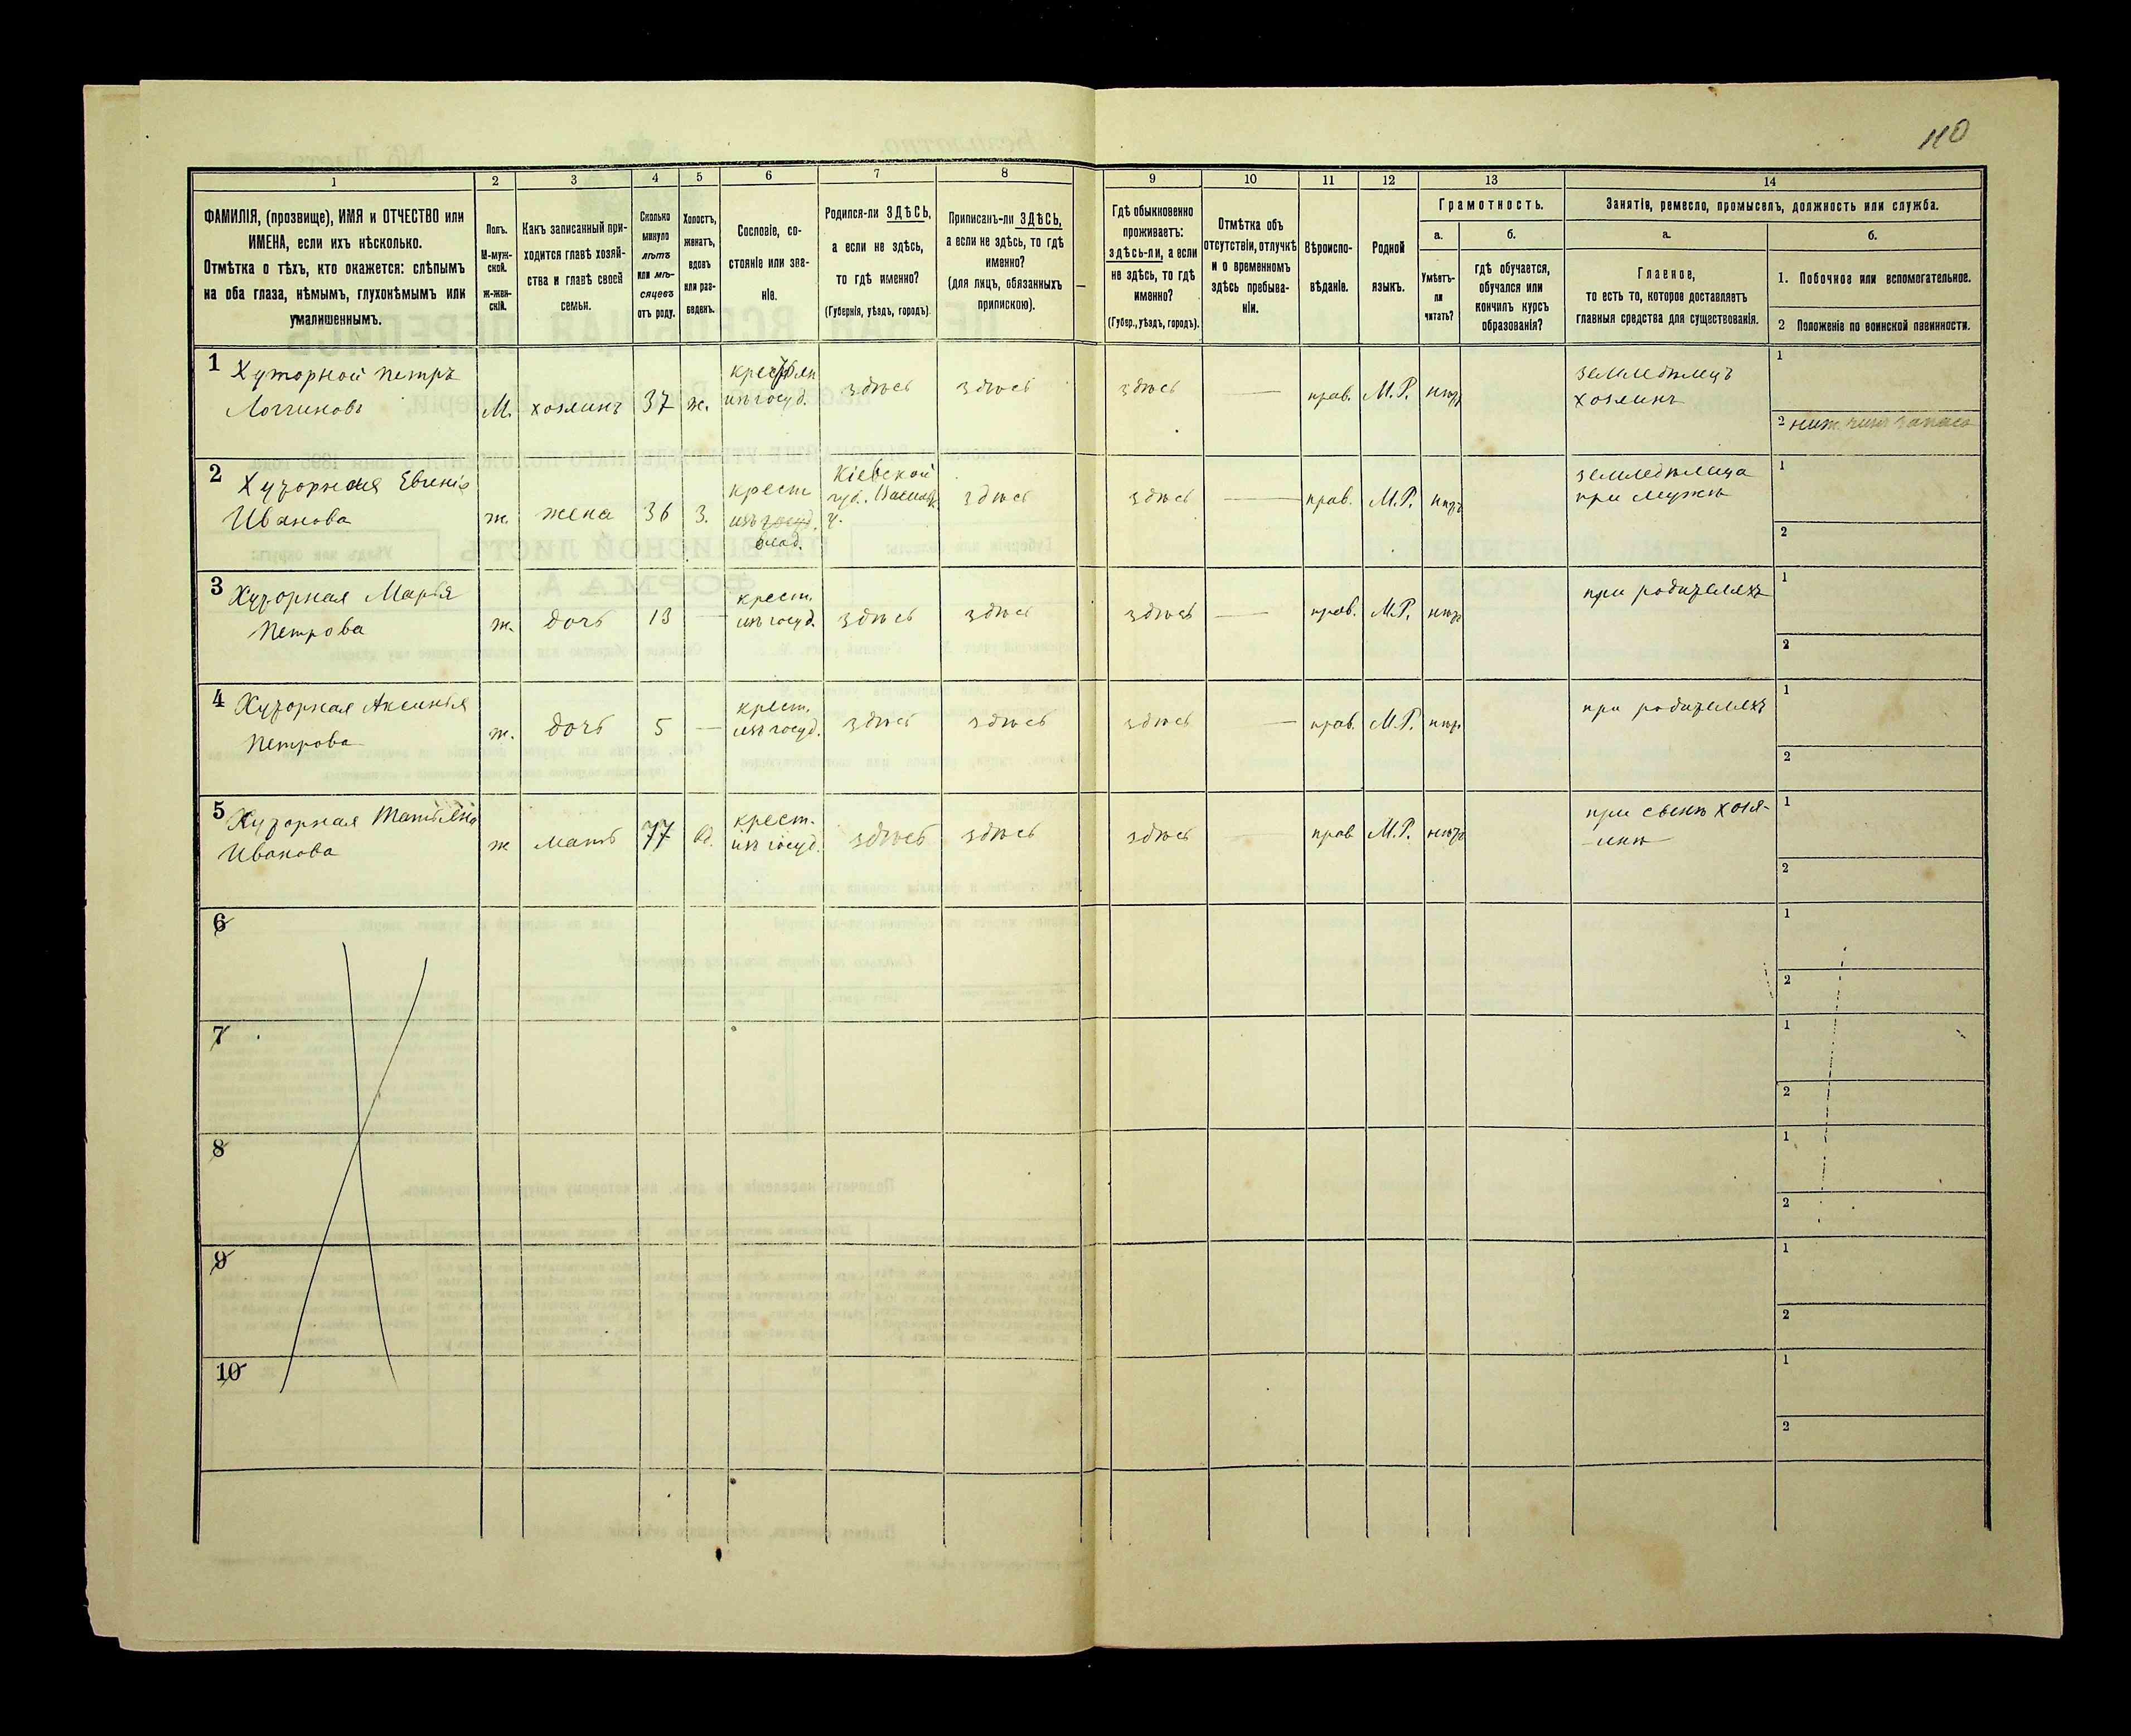 110
1 2 3 4 5 6 7 8 9 10 11 12 13 14
ФАМИЛІЯ, (прозвище), ИМЯ и ОТЧЕСТВО или
ИМЕНА, если ихъ нѣсколько.
Отмѣтка о тѣхъ, кто окажется: слѣпымъ
на оба глаза, нѣмымъ, глухонѣмымъ или
умалишеннымъ.
Полъ.
М-муж-
ской.
ж-жен-
скій.
Какъ записанный при-
ходится главѣ хозяй-
ства и главѣ своей
семьи.
Сколько
минуло
лѣтъ
или мѣ-
сяцевъ
отъ роду.
Холостъ,
женатъ,
вдовъ
или раз-
веденъ.
Сословіе, со-
стояніе или зва-
ніе.
Родился-ли ЗДѢСЬ,
а если не здѣсь,
то гдѣ именно?
(Губернія, уѣздъ, городъ).
Приписанъ-ли ЗДѢСЬ,
а если не здѣсь, то гдѣ
именно?
(для лицъ, обязанныхъ
припискою).
Гдѣ обыкновенно
проживаетъ:
здѣсь-ли, а если
не здѣсь, то гдѣ
именно?
(Губер., уѣздъ, городъ).
Отмѣтка объ
отсутствіи, отлучкѣ
и о временномъ
здѣсь пребыва-
ніи.
Вѣроиспо-
вѣданіе.
Родной
языкъ.
Грамотность.
а.
Умѣетъ-
ли
читать?
б.
гдѣ обучается,
обучался или
кончилъ курсъ
образованія?
Занятіе, ремесло, промыселъ, должность или служба.
а.
Главное,
то есть то, которое доставляетъ
главныя средства для существованія.
б.
1. Побочное или вспомогательное.
2 Положеніе по воинской повинности.
1 Хуторной Петръ
Логгиновъ
М. хозяинъ 37 ж.
крестьян
изъ госуд.
здѣсь здѣсь здѣсь — прав. М.Р. нѣтъ
земледѣлецъ
хозяинъ
1
2 ниж. чинъ запаса
2 Хуторная Евгенія
Иванова
ж. жена 36 З.
крест
изъ госуд.
влад.
Кіевской
губ. Васильк.
у.
здѣсь здѣсь — прав. М.Р. нѣтъ
земледѣлица
при мужѣ
1
2
3 Хуторная Марья
Петрова
ж. дочь 13 —
крест.
изъ госуд.
здѣсь здѣсь здѣсь — прав. М.Р. нѣтъ
при родителяхъ
1
2
4 Хуторная Аксинья
Петрова
ж. дочь 5 —
крест.
изъ госуд.
здѣсь здѣсь здѣсь — прав. М.Р. нѣтъ
при родителяхъ
1
2
5 Хуторная Татьяна
Иванова
ж мать 77 вд.
крест.
изъ госуд.
здѣсь здѣсь здѣсь — прав М.Р. нѣтъ
при сынѣ хозя-
инѣ
1
2
6
1
2
7
1
2
8
1
2
9
1
2
10
1
2